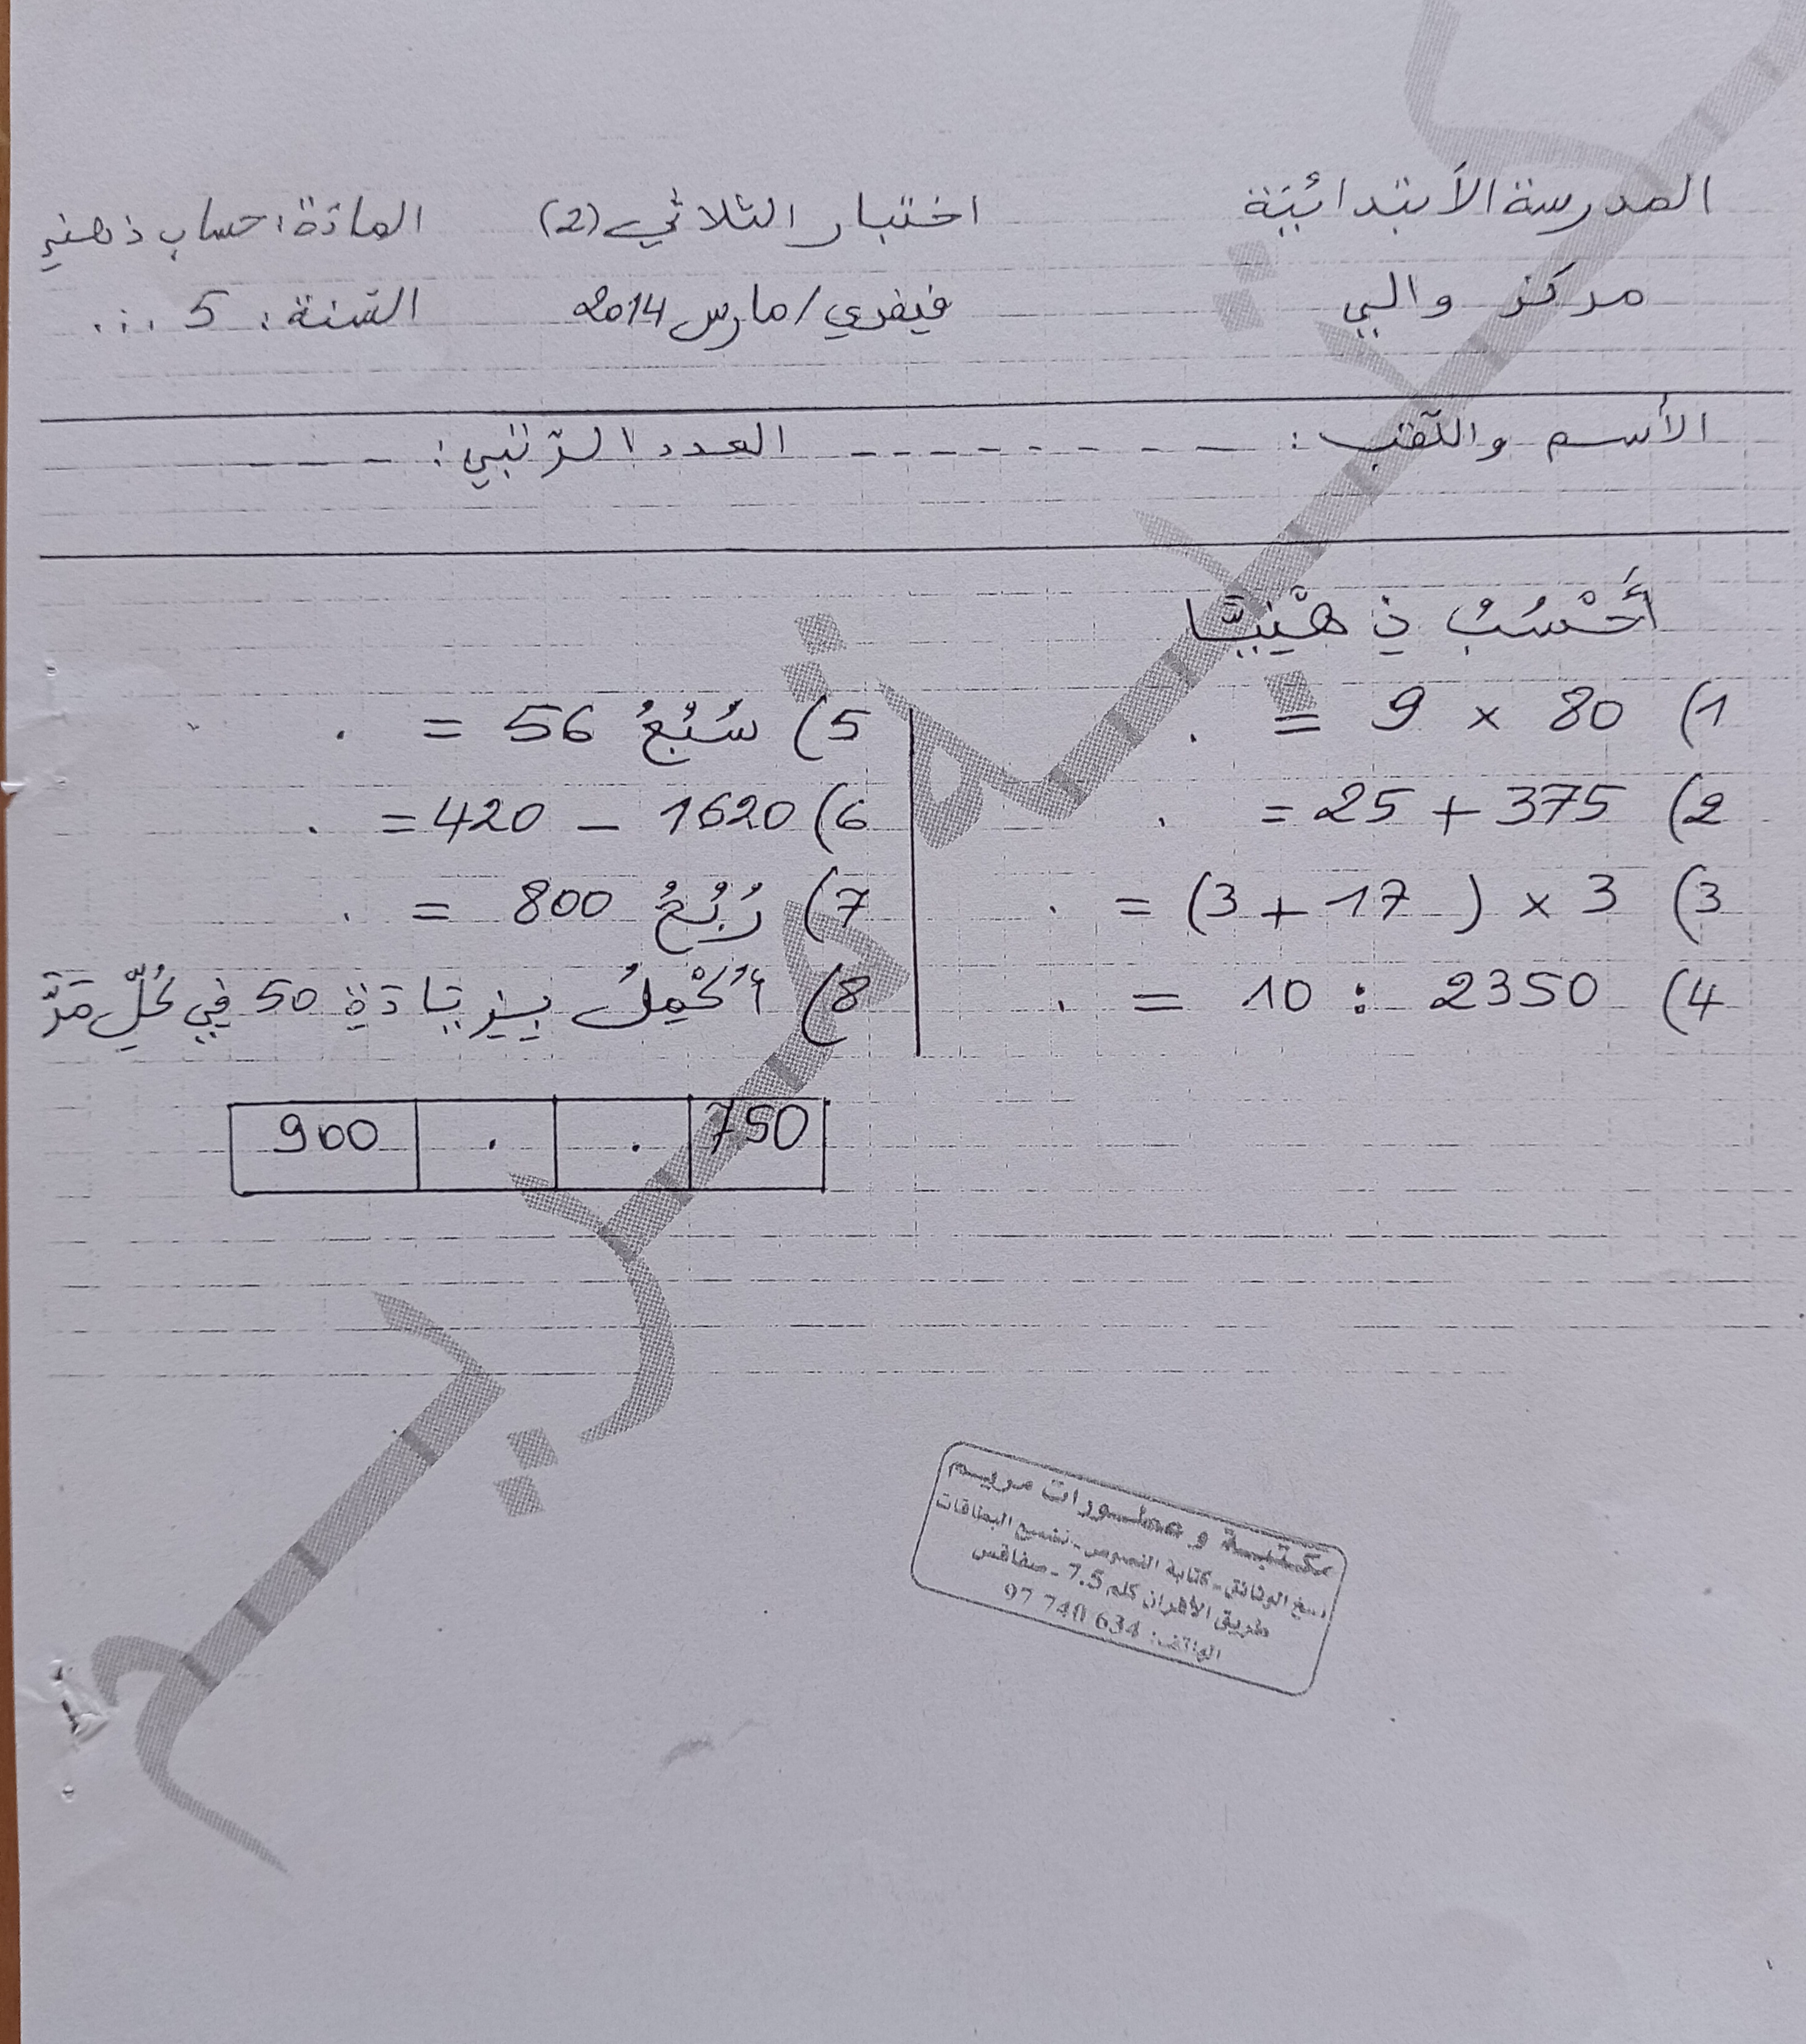 المدرسة الأبتدائيّة اختبار الثلاثي (2) المادّة: حساب ذهني
مركز والي فيفري/مارس 2014 السّنة: 5 ...
الأسم واللّقب: --------- العدد الرّتبي: ----
أَحْسُبُ ذِهْنِيًّا
1) 80 × 9 = .
2) 375 + 25 = .
3) 3 × (17 + 3) = .
4) 2350 : 10 = .
5) سُبُعُ 56 = .
6) 1620 - 420 = .
7) رُبُعُ 800 = .
8) أُكْمِلُ بِزِيَادَةِ 50 فِي كُلِّ مَرَّ
750 . . 900
مكتبة و مطبورات مريم
نسخ الوثائق - كتابة النصوص - تشميع البطاقات
طريق الأفران كلم 7.5 - صفاقس
الهاتف: 97 740 634